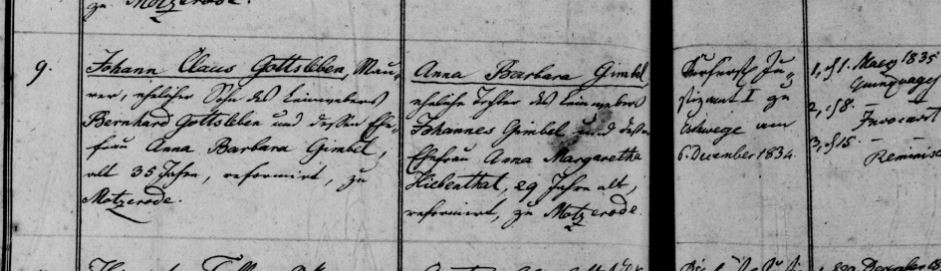 zu Motzerode.
9.
Johann Claus Gottsleben, Mau-
rer, ehelicher Sohn des Leinwebers
Bernhard Gottsleben und dessen Ehe-
frau Anna Barbara Gimbel,
alt 35 Jahre, reformirt, zu
Motzerode.
Anna Barbara Gimbel,
eheliche Tochter des Leinwebers
Johannes Gimbel und dessen
Ehefrau Anna Margaretha
Hiebenthal, 29 Jahre alt,
reformirt, zu Motzerode.
Kurfürstl. Ju-
stizamt I zu
Eschwege am
6. December 1834.
1, d 1. März 1835
2, d 8. – Invocavit
3, d 15. –
Reminisc